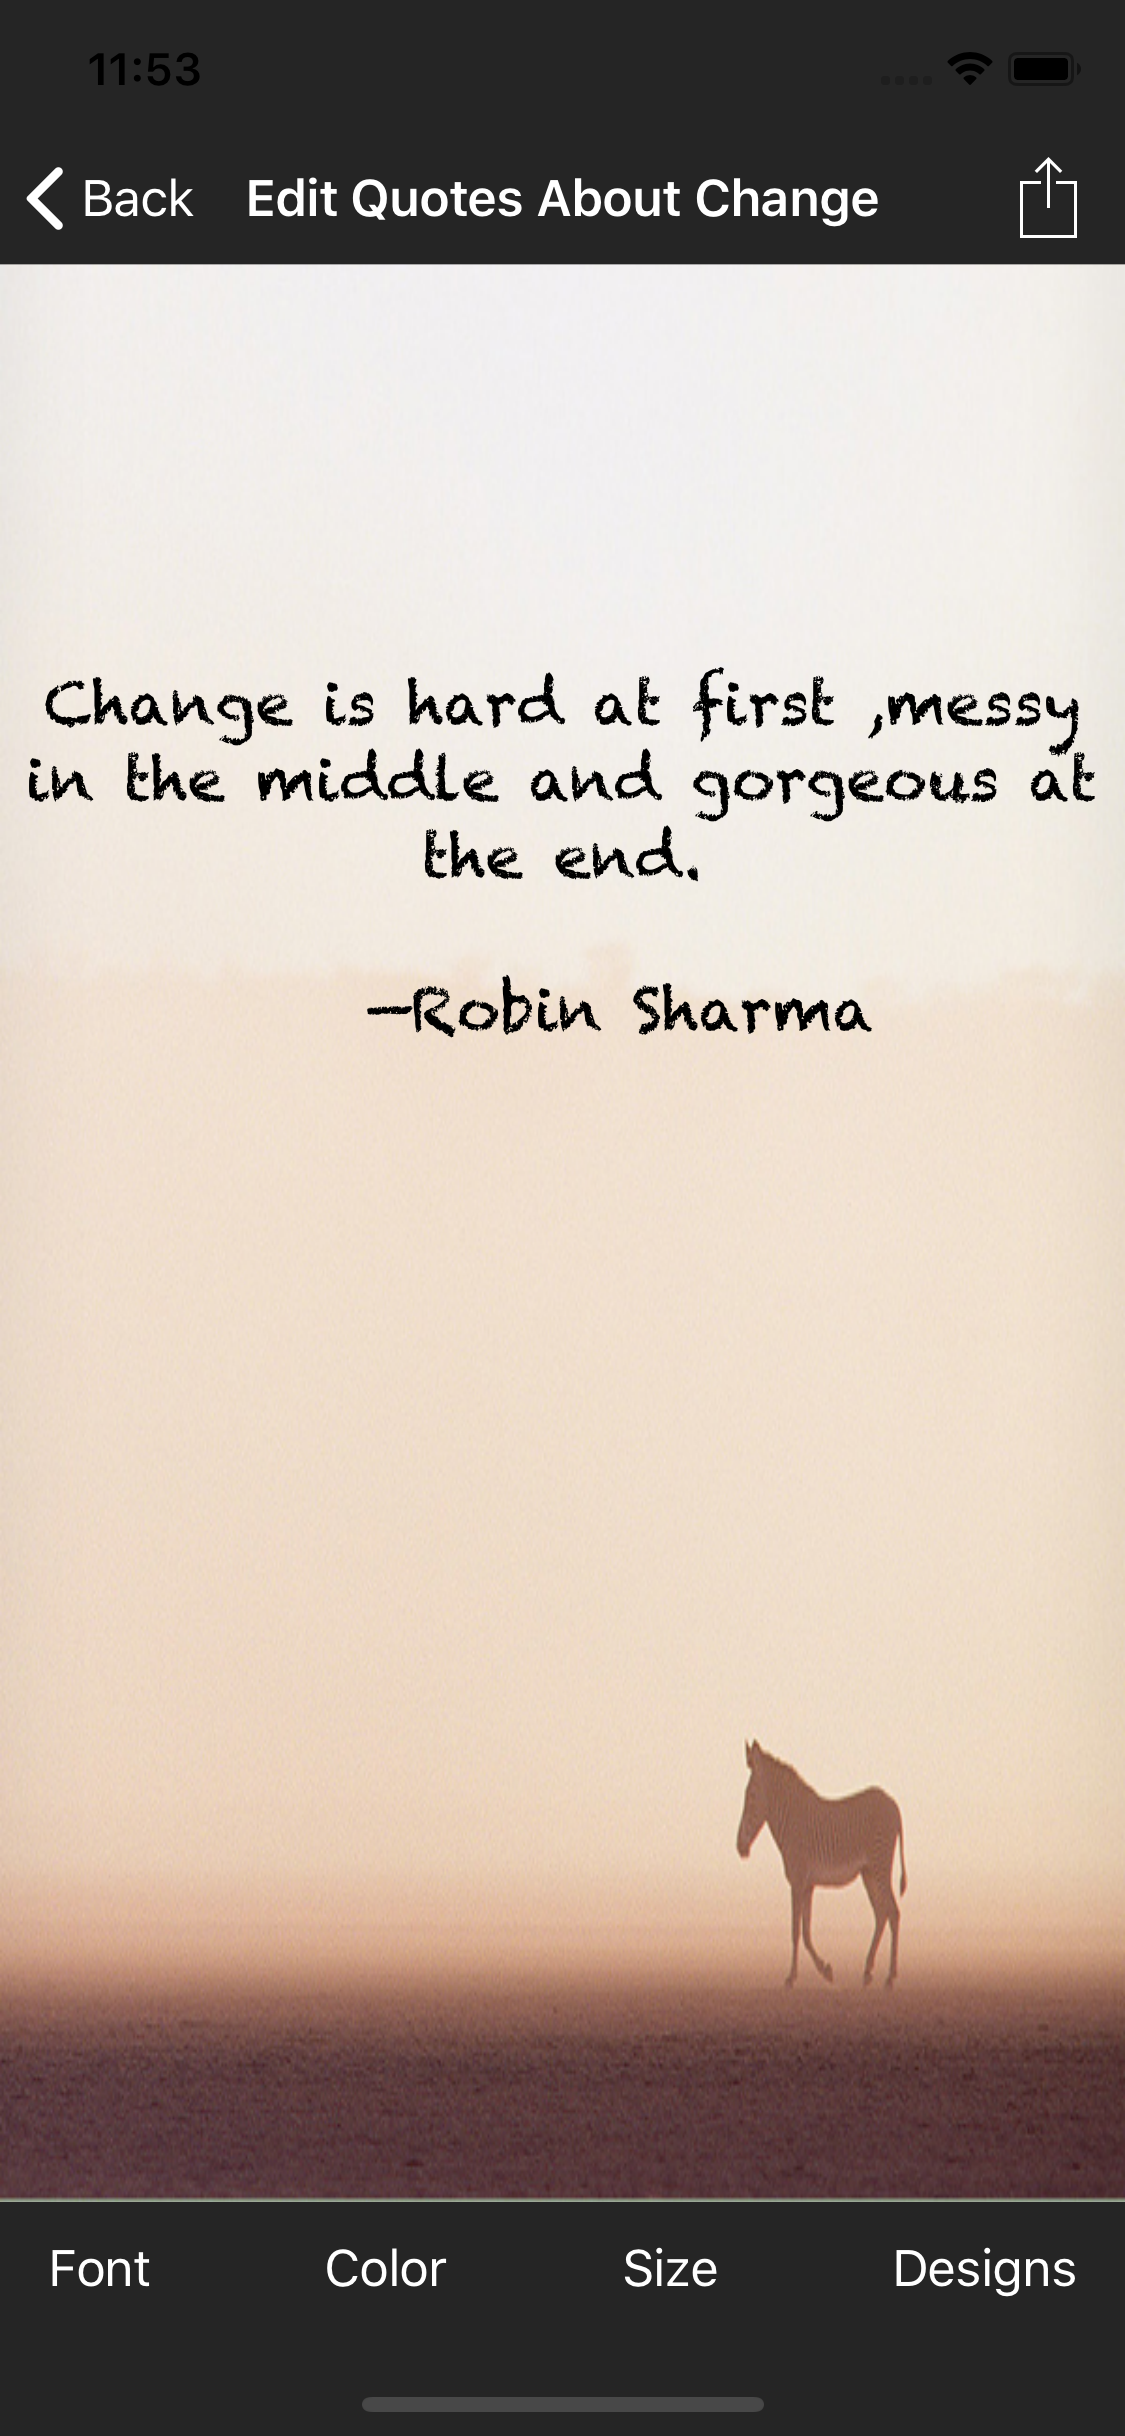 11:53
Back Edit Quotes About Change
Change is hard at first ,messy
in the middle and gorgeous at
the end.
–Robin Sharma
Font Color Size Designs